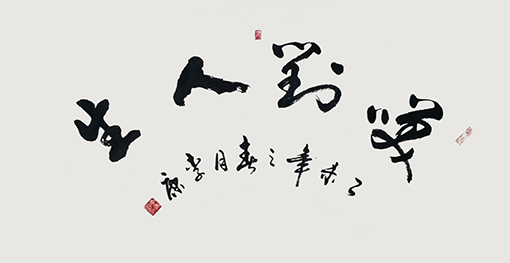 笑對人生
乙未年之春月李康